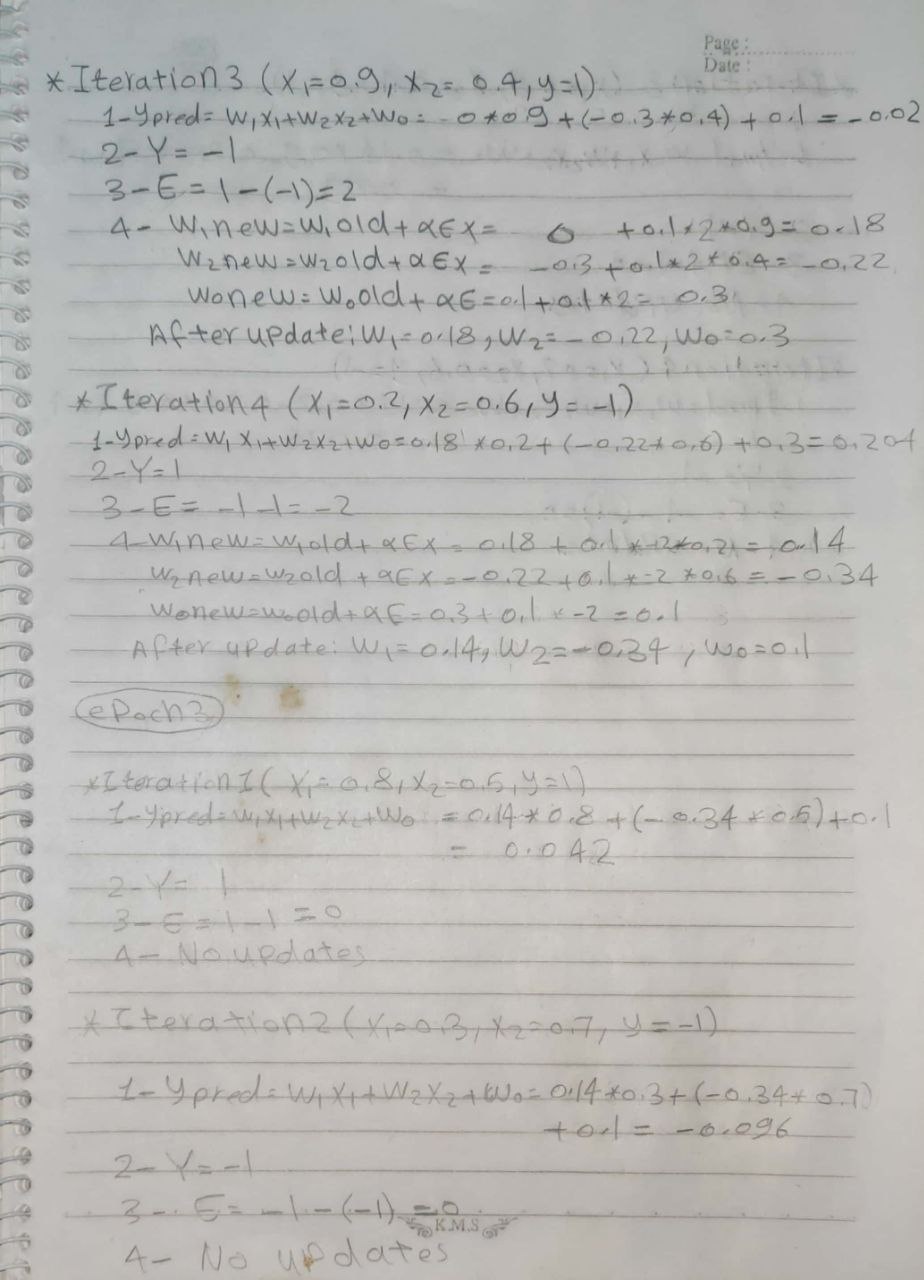 Page:
Date:
* Iteration 3 (X₁=0.9, X₂= 0.4, y=1)
1-ypred= W₁X₁+W₂X₂+W₀= 0*0.9+(-0.3*0.4)+0.1=-0.02
2-Y=-1
3-E=1-(-1)=2
4- W₁new=W₁old+αEX= 0 +0.1*2*0.9=0.18
W₂new=W₂old+αEX= -0.3+0.1*2*0.4=-0.22
W₀new=W₀old+αE=0.1+0.1*2= 0.3
After update: W₁=0.18, W₂=-0.22, W₀=0.3
* Iteration 4 (X₁=0.2, X₂=0.6, y=-1)
1-ypred=W₁X₁+W₂X₂+W₀=0.18*0.2+(-0.22*0.6)+0.3=0.204
2-Y=1
3-E= -1-1=-2
4-W₁new=W₁old+αEX=0.18+0.1*-2*0.2=0.14
W₂new=W₂old+αEX=-0.22+0.1*-2*0.6=-0.34
W₀new=W₀old+αE=0.3+0.1*-2=0.1
After update: W₁=0.14, W₂=-0.34, W₀=0.1
epoch3
* Iteration 1( X₁=0.8, X₂=0.5, y=1)
1-ypred=W₁X₁+W₂X₂+W₀ =0.14*0.8+(-0.34*0.5)+0.1
= 0.042
2-Y= 1
3-E=1-1=0
4- No updates
* Iteration 2 (X₁=0.3, X₂=0.7, y=-1)
1-ypred=W₁X₁+W₂X₂+W₀=0.14*0.3+(-0.34*0.7)
+0.1= -0.096
2-Y=-1
3- E= -1-(-1)=0
K.M.S
4- No updates